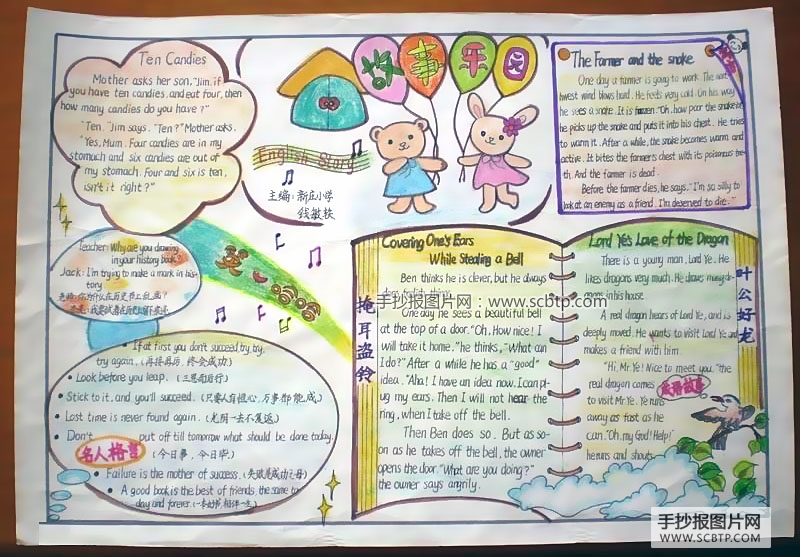 Ten Candies
Mother asks her son, "Jim, if
you have ten candies, and eat four, then
how many candies do you have?"
"Ten." Jim says. "Ten?" Mother asks.
"Yes, Mum. Four candies are in my
stomach and six candies are out of
my stomach. Four and six is ten,
isn't it right?"
故事乐园
English Story
主编:新庄小学
The Farmer and the snake
One day a farmer is going to work. The nort
hwest wind blows hard. He feels very cold. On his way
he sees a snake. It is frozen. "Oh, how poor the snake is!"
he picks up the snake and puts it into his chest. He tries
to warm it. After a while, the snake becomes warm and
active. It bites the farmer's chest with its poisonous tee-
th. And the farmer is dead.
Before the farmer dies, he says. "I'm so silly to
look at an enemy as a friend. I'm deserved to die."
Teacher: Why are you drawing
in your history book?
Jack: I'm trying to make a mark in his-
tory.
英
If at first you don't succeed, try, try,
try again. (再接再厉,终会成功)
Look before you leap. (三思而后行)
Stick to it, and you'll succeed. (只要人有恒心,万事都能成)
Lost time is never found again. (光阴一去不复返)
Don't put off till tomorrow what should be done today.
名人格言 (今日事,今日毕)
Failure is the mother of success. (失败是成功之母)
A good book is the best of friends, the same to-
day and forever.
掩耳盗铃
Covering One's Ears
While Stealing a Bell
Ben thinks he is clever, but he always
One day he sees a beautiful bell
at the top of a door. "Oh, How nice! I
will take it home." he thinks, "What can
I do?" After a while he has a "good"
idea. "Aha! I have an idea now. I can pl-
ug my ears. Then I will not hear the
ring, when I take off the bell.
Then Ben does so. But as so-
on as he takes off the bell, the owner
opens the door. "What are you doing?"
the owner says angrily.
Lord Ye's Love of the Dragon
There is a young man, Lord Ye. He
likes dragons very much. He draws many d-
ragons in his house.
A real dragon hears of Lord Ye, and is
deeply moved. He wants to visit Lord Ye and
makes a friend with him.
"Hi, Mr. Ye! Nice to meet you." the
real dragon comes
to visit Mr. Ye. Ye runs
away as fast as he
can. "Oh, my God! Help!"
he runs and shouts.
叶公好龙
成语故事
手抄报图片网:www.scbtp.com
手抄报图片网
WWW.SCBTP.COM